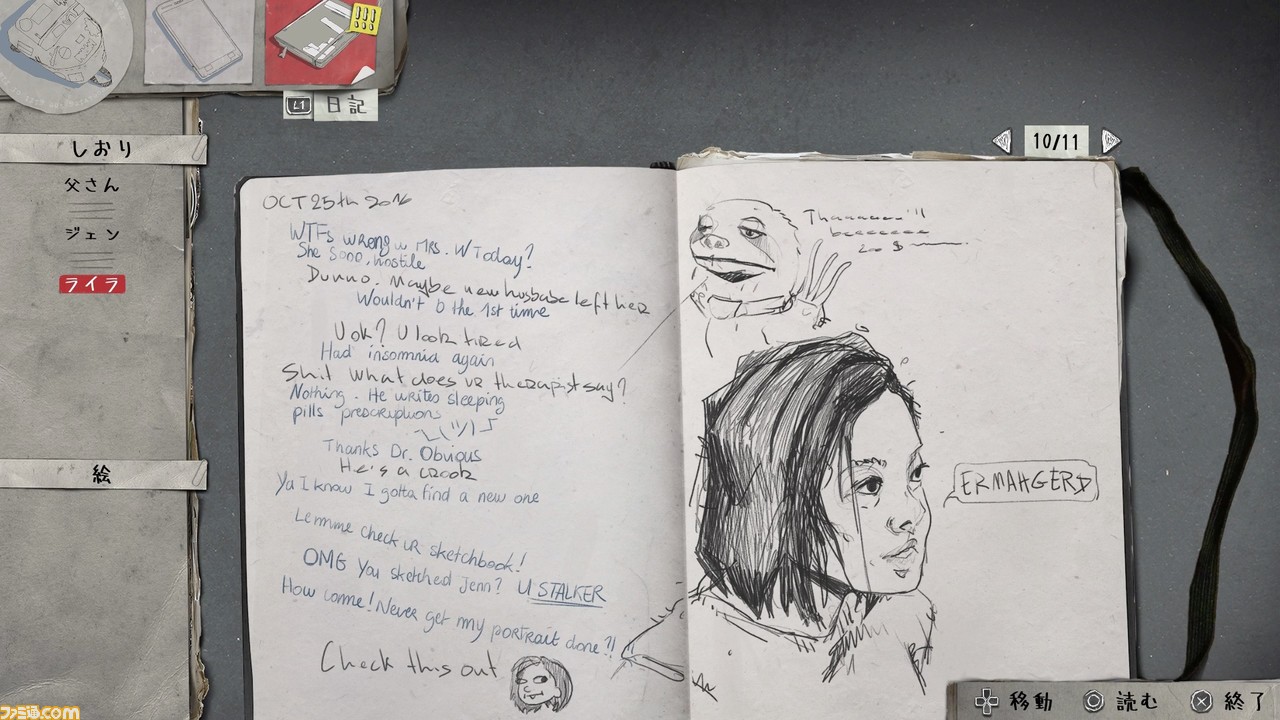 L1 日記
しおり
父さん
ジェン
ライラ
絵
10/11
OCT 25th 2016
WTFs wrong w Mrs. W Today?
She Sooo, hostile
Dunno. Maybe new husbabe left her
Wouldn't b the 1st time
U ok? U look tired
Had insomnia again
Shit what does ur therapist say?
Nothing. He writes sleeping
pills prescriptions
Thanks Dr. Obvious
He's a crook
Ya I know I gotta find a new one
Lemme check uR sketchbook!
OMG You sketched Jenn? U STALKER
How come! Never get my portrait done?!!
Check this out
Thaaaaaa'll
beeeeeee
20 $
ERMAHGERD
移動
読む
終了
ファミ通.com